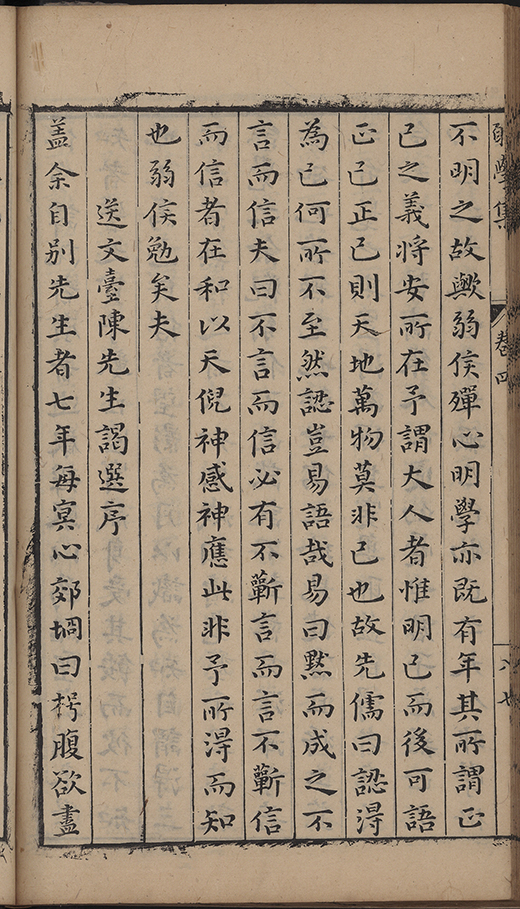 學集
卷四
不明之故歟弱侯殫心明學亦既有年其所謂正
己之義將安所在予謂大人者惟明己而後可語
正己正己則天地萬物莫非己也故先儒曰認得
為己何所不至然認豈易語哉易曰默而成之不
言而信夫曰不言而信必有不蘄言而言不蘄信
而信者在和以天倪神感神應此非予所得而知
也弱侯勉矣夫
送文臺陳先生謁選序
盖余自別先生者七年每冥心郊坰曰枵腹欲盡